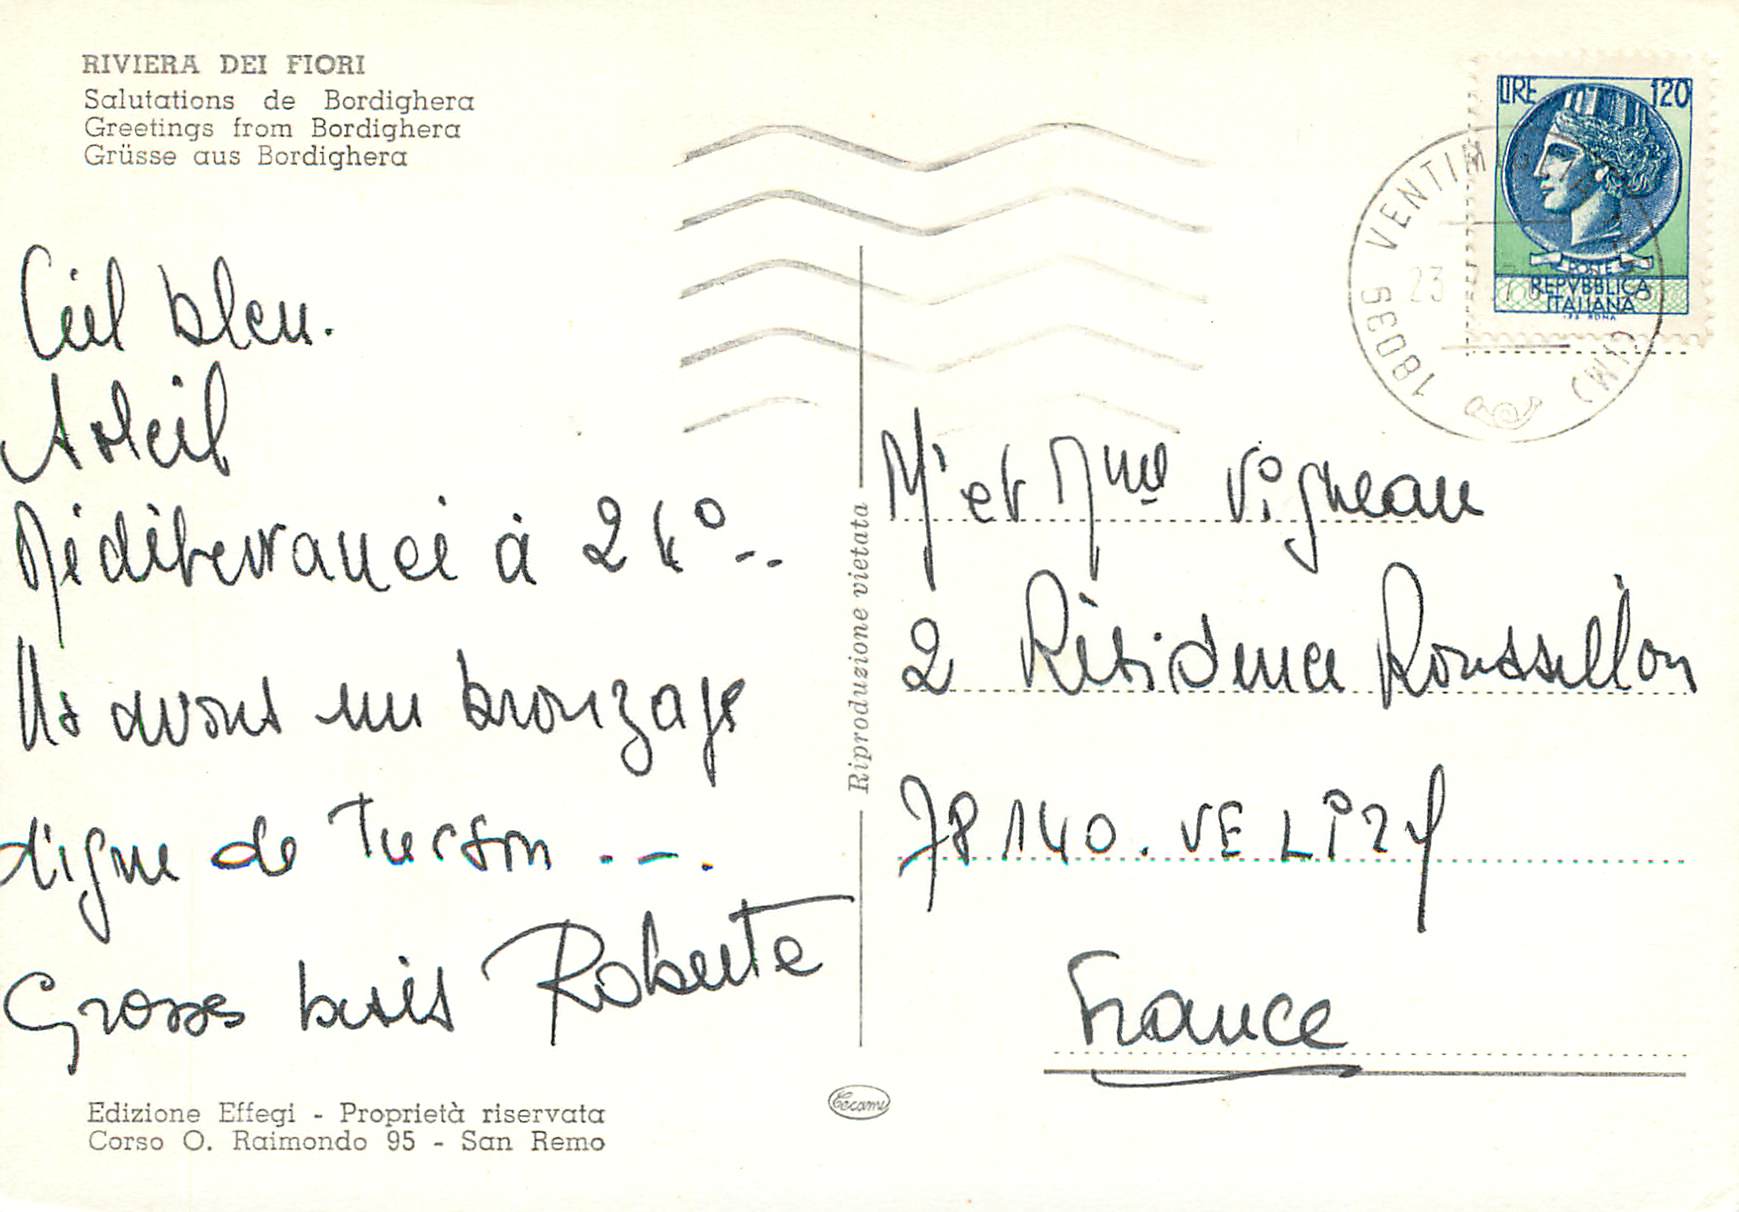 RIVIERA DEI FIORI
Salutations de Bordighera
Greetings from Bordighera
Grüsse aus Bordighera
Ciel bleu.
Soleil
Méditerranée à 24°...
Ns avons un bronzage
digne de Tucson ....
Grosses bises Roberte
Edizione Effegi - Proprietà riservata
Corso O. Raimondo 95 - San Remo
Riproduzione vietata
Tecami
LIRE 120
POSTE
REPVBBLICA
ITALIANA
VENTIMIGLIA
18039
CMMI
23
Mr et Mme Vigneau
2 Résidence Roussillon
78140. VELIZY
France